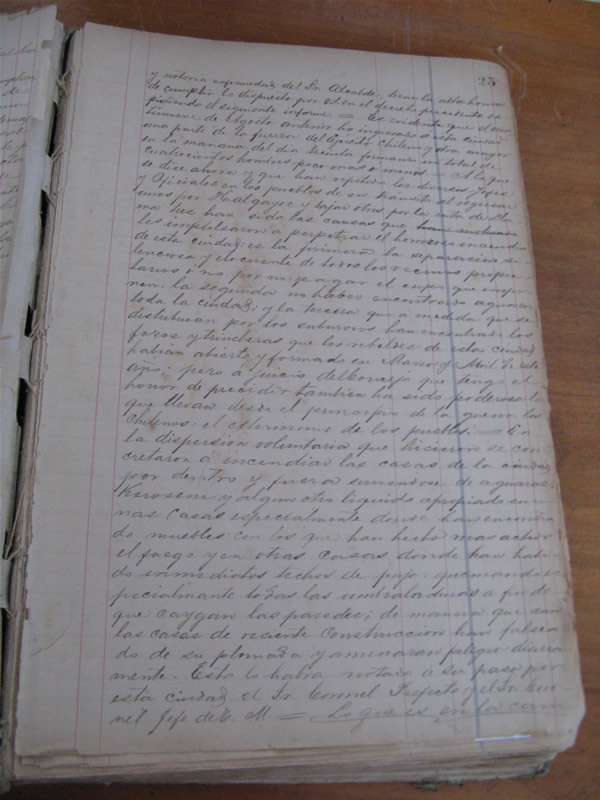 23
y notoria enfermedad del Sr. Alcalde, tiene la alta honra
de cumplir lo dispuesto por Vd en el decreto precedente es-
pidiendo el siguiente informe. = Es evidente que el
de Agosto anterior ha ingresado a esta ciudad
una parte de la fuerza del Ejército Chileno y otra mayor
en la mañana del dia treinta formando un total de
cuatrocientos hombres poco mas o menos. = A lo que
se dice ahora y que han repetido los diversos Jefes
y Oficiales en los pueblos de su transito al regresar
unos por Hualgayoc y bajar otros por la ruta de
tres han sido las causas que
les impulsaron a perpetrar el horroroso incendio
de esta ciudad: es la primera la
y elocuente de todos los vecinos propie-
tarios i no por no pagar el cupo que impu-
sieron: la segunda no haber encontrado aguas en
toda la ciudad; y la tercera que a medida que se
distribuian por los suburvios han encontrado los
fozos y trincheras que los rebeldes de esta ciudad
habian abierto y formado en Marzo y Abril de este
año: pero a juicio del Concejo que tengo el
honor de precidir tambien ha sido poderosa la
que llevan desde el principio de la guerra los
Chilenos: el esterminio de los pueblos. = En
la dispersion voluntaria que hicieron se con-
cretaron a incendiar las casas de la ciudad
por dentro y fuera sirviendose de aguarras,
Kerosene y algun otro liquido apropiado en u-
nas casas especialmente donde han encontra-
do muebles con los que han hecho mas activo
el fuego y en otras casas donde han habi-
do inmediatos techos de paja: quemando es-
pecialmente todas las umbraladuras a fin de
que caygan las paredes; de manera que aun
las casas de reciente construccion han falsea-
do de su plomada y amenasan peligro diaria
mente. Esto lo habra notado a su paso por
esta ciudad el Sr. Coronel Prefecto y el Sr. Coro-
nel Jefe de E. M. = Lo que es en la